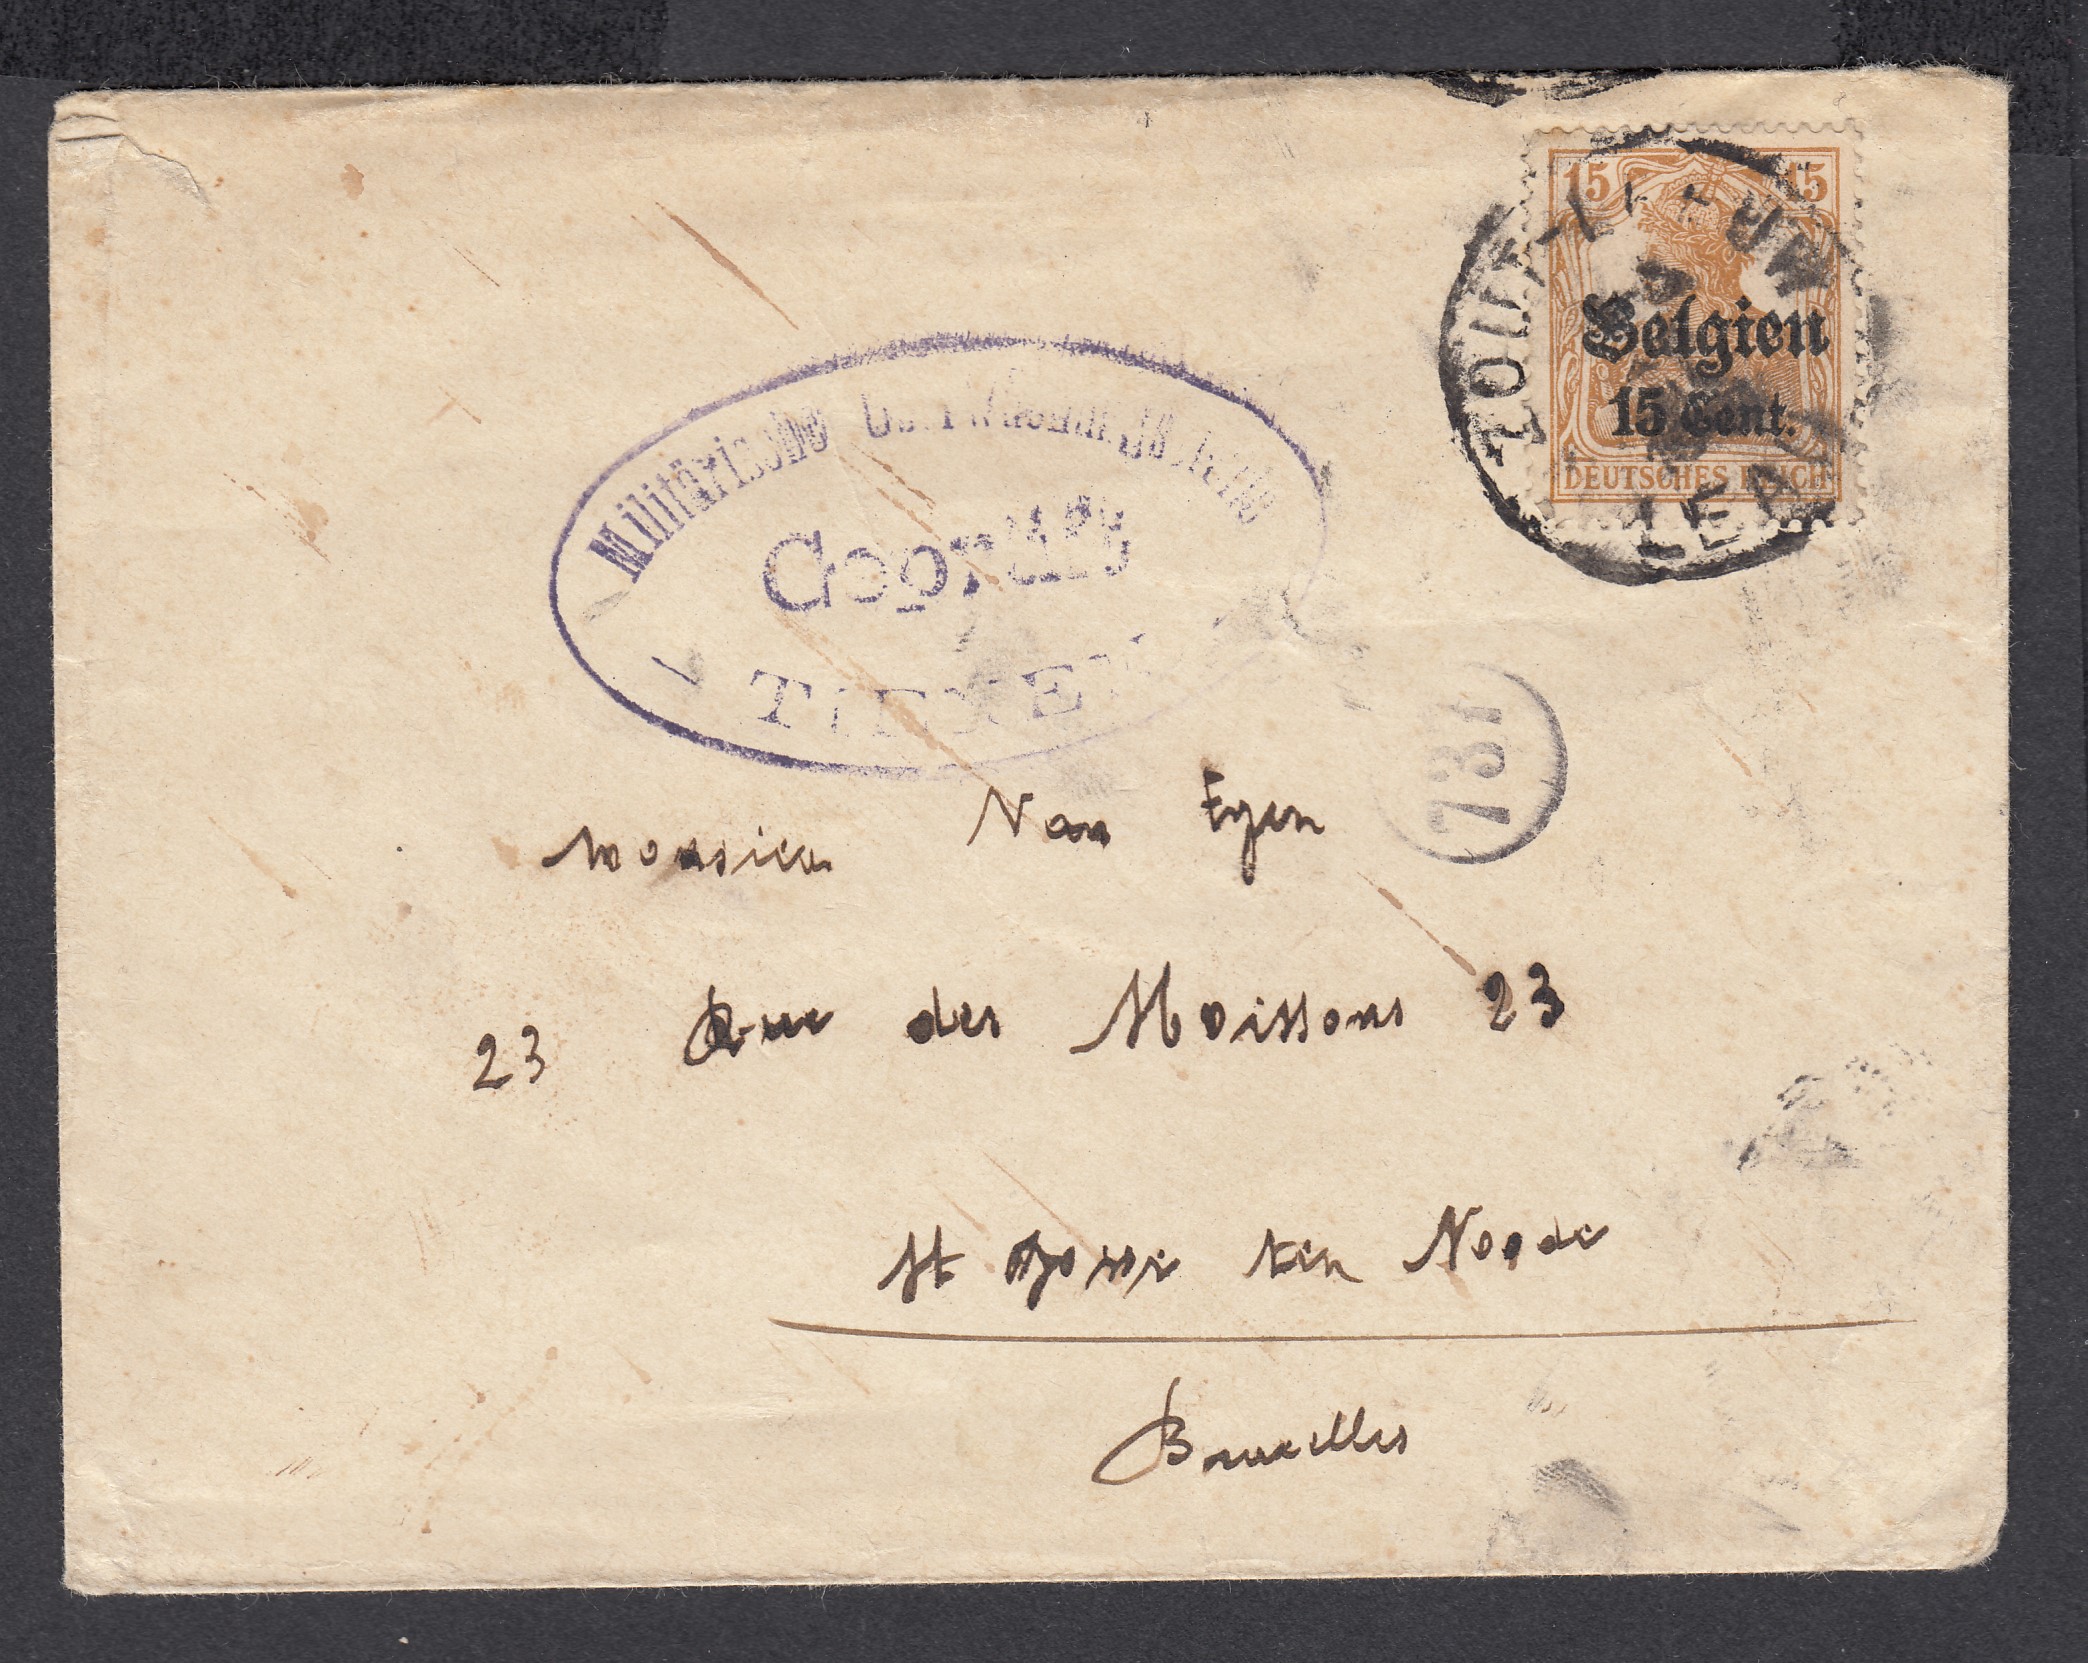 15 15
Belgien
15 Cent.
DEUTSCHES REICH
ZOUT-LEEUW
LEAU
Militärische Überwachungsstelle
Geprüft
TIENEN
731
Monsieur Van Eyen
23 Rue des Moissons 23
St Josse ten Noode
Bruxelles